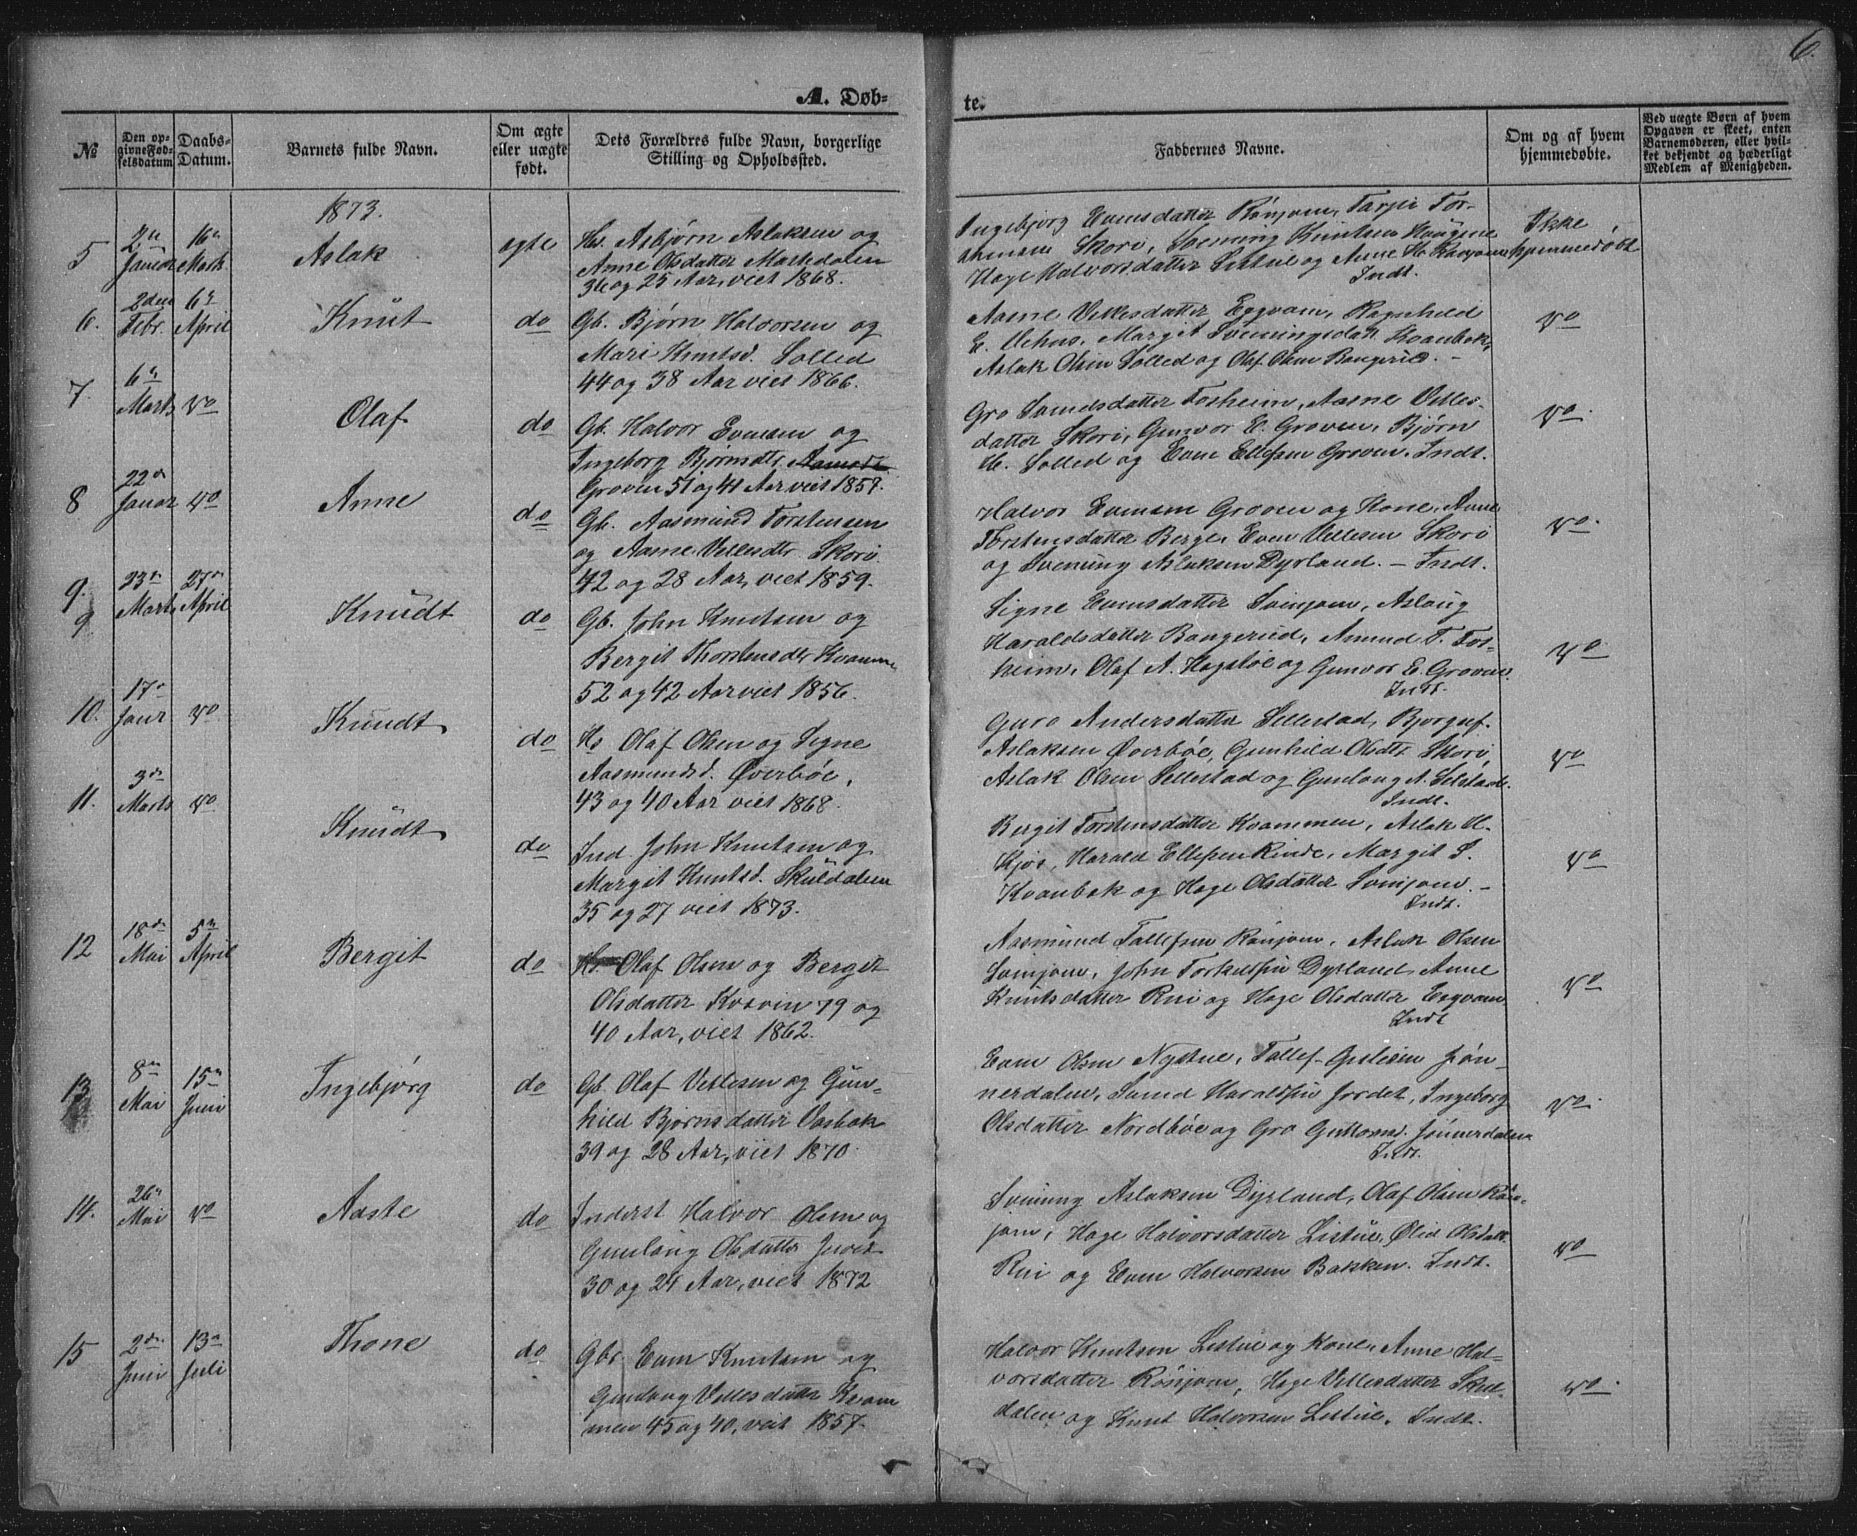 6.
A. Døb-
te.
№
Den op-
givne Fød-
selsdatum
Daabs-
Datum.
Barnets fulde Navn.
Om ægte
eller uægte
født.
Dets Forældres fulde Navn, borgerlige
Stilling og Opholdssted.
Faddernes Navne.
Om og af hvem
hjemmedøbte.
Ved uægte Børn af hvem
Opgaven er skeet, enten
Barnemoderen, eller hvil-
ket bekjendt og hæderligt
Medlem af Menigheden.
1873.
5
16n
Mark
Aslak
egte
Hs. Asbjørn Aslaksen og
Anne Olsdatter Markdalen
36 og 25 Aar, viet 1868.
Ingebjorg Evensdatter Rønjom, Tarjei Tor-
stensen Skori, Svenning Knutsen Haugene
Hage Halvorsdatter Listul og Anne H. Rønjom
Indt.
Ikke
hjemmedøbt
6.
2den
Febr.
6n
April
Knut
do
Gb. Bjørn Halvorsen og
Mari Knutsd. Solled
44 og 38 Aar viet 1866.
Aasne Vetlesdatter Eggvam, Ragnhild
E. Uehus, Margit Sveningsdatt Kvanbek,
Aslak Olsen Solled og Olaf Olsen Bangerud. -
do
7.
6n
Marts
do
Olaf
do
Gb. Halvor Evensen og
Ingeborg Bjornsdtr.
Groven 51 og 41 Aar viet 1857.
Gro Samdsdatter Forheim, Aasne Vetles-
datter Skori, Gunvor E. Groven, Bjørn
H. Solled og Even Ellefsen Groven. Indt.
do
8
22n
Januar
do
Anne
do
Gb. Aasmund Torstensen
og Aasne Vetlesdtr Skori
42 og 28 Aar, viet 1859.
Halvor Evensen Groven og Kone, Anne
Torstensdatter Berge, Even Vetlesen Skori
og Svening Aslaksen Dyrland. - Indt.
do
9.
9
23n
Marts
27n
April
Knudt
do
Gb. John Knutsen og
Bergit Thorstensdtr Kvamme
52 og 42 Aar viet 1856.
Signe Evensdatter Svinjom, Aslaug
Haraldsdatter Bangerud, Amund T. For-
heim, Olaf A. Hagstøe og Gunvor E. Groven
Indt.
do
10.
17n
Janr
do
Knudt
do
Hs Olaf Olsen og Signe
Aasmundsd. Øverbøe,
43 og 40 Aar viet 1868.
Guro Andersdatter Sellestad, Bjorguf.
Aslaksen Øverbøe, Gunhild Olsdtr Skori
Aslak Olsen Sellestad og Gunlaug A. Selstad.
Indt.
do
11.
3de
Marts
do
Knudt
do
Ind John Knutsen og
Margit Knutsd. Skuldalen
35 og 27 viet 1873.
Bergit Torstensdatter Kvammen, Aslak H.
Kjos, Harald Ellefsen Rinde, Margit S.
Kvanbek og Hage Olsdatter Svinjom. -
Indt.
do
12
18de
Mai
5n
April
Bergit
do
Olaf Olsen og Bergit
Olsdatter Kvavin 79 og
40 Aar, viet 1862.
Aasmund Tallefsen Rønjom, Aslak Olsen
Svinjom, John Torkelsen Dyrland, Anne
Knutsdatter Rui og Hage Olsdatter Eggvam
Indt
do
13
8n
Mai
15n
Juni
Ingebjørg
do
Gb. Olaf Vetlesen og Gun-
hild Bjørnsdatter Vasbæk
39 og 28 Aar, viet 1870.
Even Olsen Nystue, Tallef Gislesen Jøn-
nerdalen, Samd Haraldsen Jordet, Ingeborg
Olsdatter Nordbøe og Gro Guttormsd. Jønnerdalen
Indt.
do
14.
26n
Mai
do
Aaste
do
Inderst Halvor Olsen og
Gunlaug Olsdatter Juvet
30 og 24 Aar, viet 1872
Svening Aslaksen Dyrland, Olaf Olsen Røn-
jom, Hage Halvorsdatter Listul, Ølid Olsdatt.
Rui og Even Halvorsen Bakken. Indt.
do
15
2de
Juni
13n
Juli
Thone
do
Gbr Even Knutsen og
Gunlaug Vetlesdatter Kvam
men 45 og 40, viet 1857.
Halvor Knutsen Listul og Kone, Anne Hal-
vorsdatter Rønjom, Hage Vetlesdatter Skul-
dalen og Knut Halvorsen Listul. Indt.
do